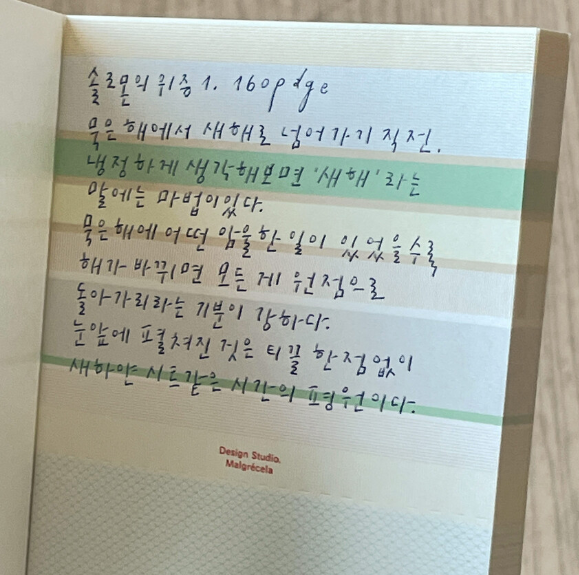 솔로몬의 위증 1. 160page
묵은 해에서 새해로 넘어가기 직전.
냉정하게 생각해보면 '새해'라는
말에는 마법이 있다.
묵은해에 어떤 암울한 일이 있었을수록
해가 바뀌면 모든 게 원점으로
돌아가리라는 기분이 강하다.
눈앞에 펼쳐진 것은 티끌 한점없이
새하얀 시트같은 시간의 평원이다.
Design Studio.
Malgrécela